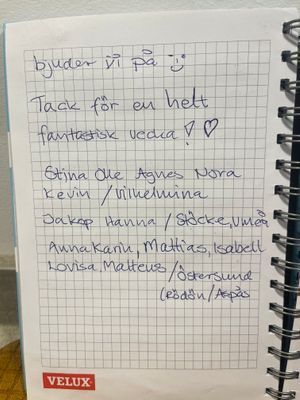 bjuder vi på :)
Tack för en helt
fantastisk vecka! ♡
Stina Olle Agnes Nora
Kevin / Vilhelmina
Jakop Hanna / Stöcke, Umeå
AnnaKarin, Mattias, Isabell
Lovisa, Matteus / Östersund
(Rödön / Aspås
VELUX